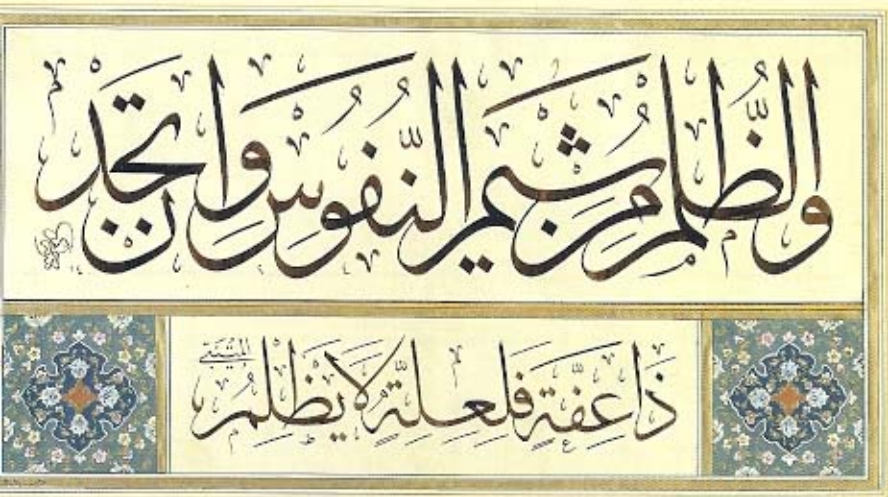 وَالظُّلْمُ مِنْ شِيَمِ النُّفُوسِ وَإِنْ تَجِدْ
ذَا عِفَّةٍ فَلِعِلَّةٍ لَا يَظْلِمُ
المتنبي